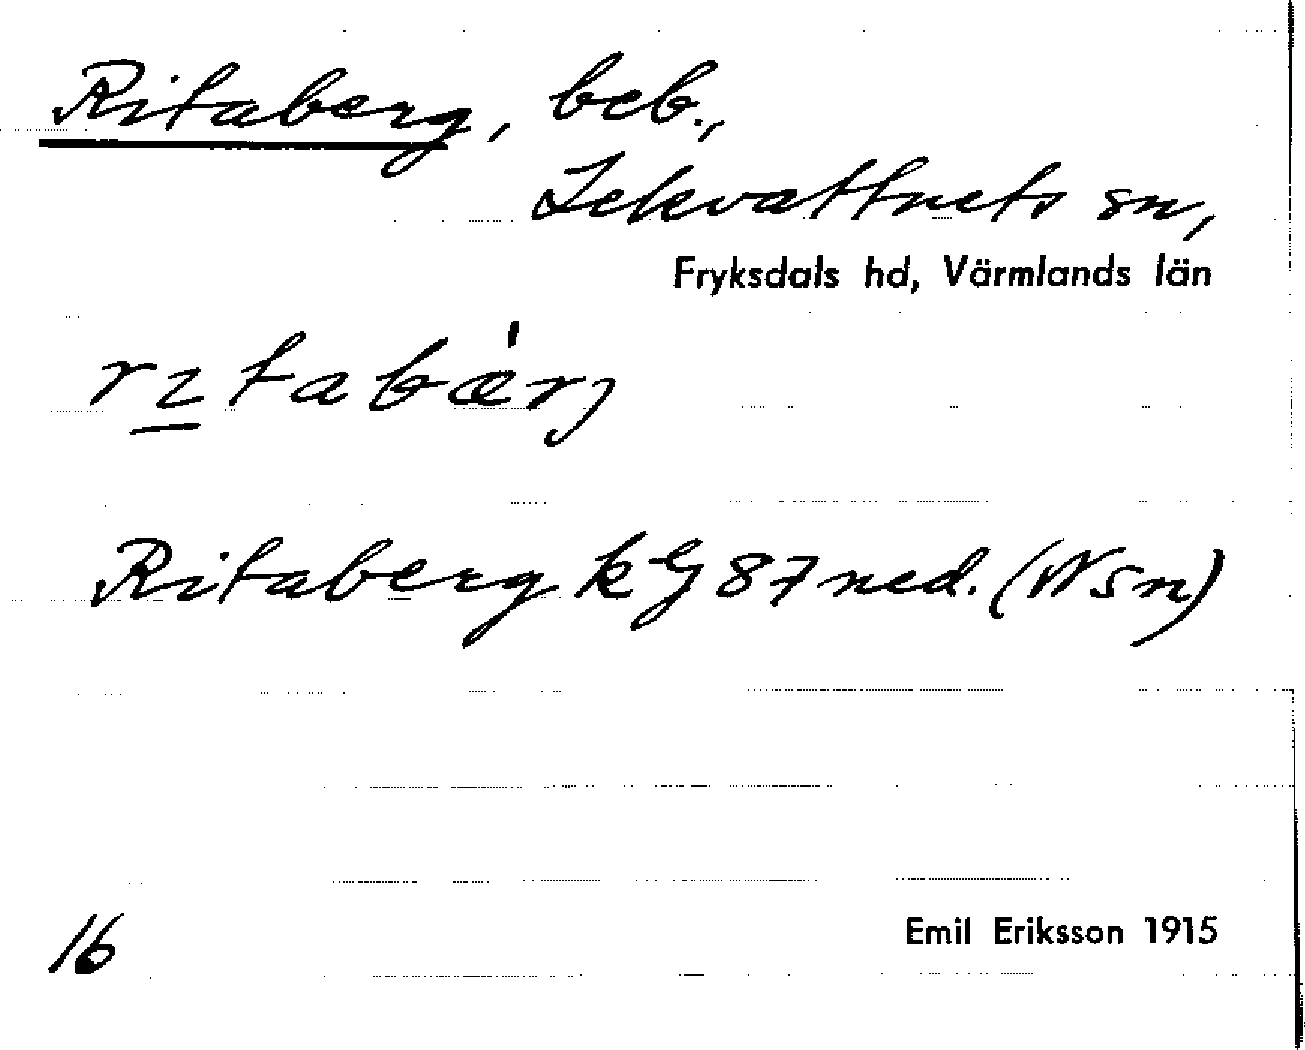 Ritaberg, beb.,
Lekvattnets sn,
Fryksdals hd, Värmlands län
Ritaberg kG 87 ned. (Wsn)
16
Emil Eriksson 1915